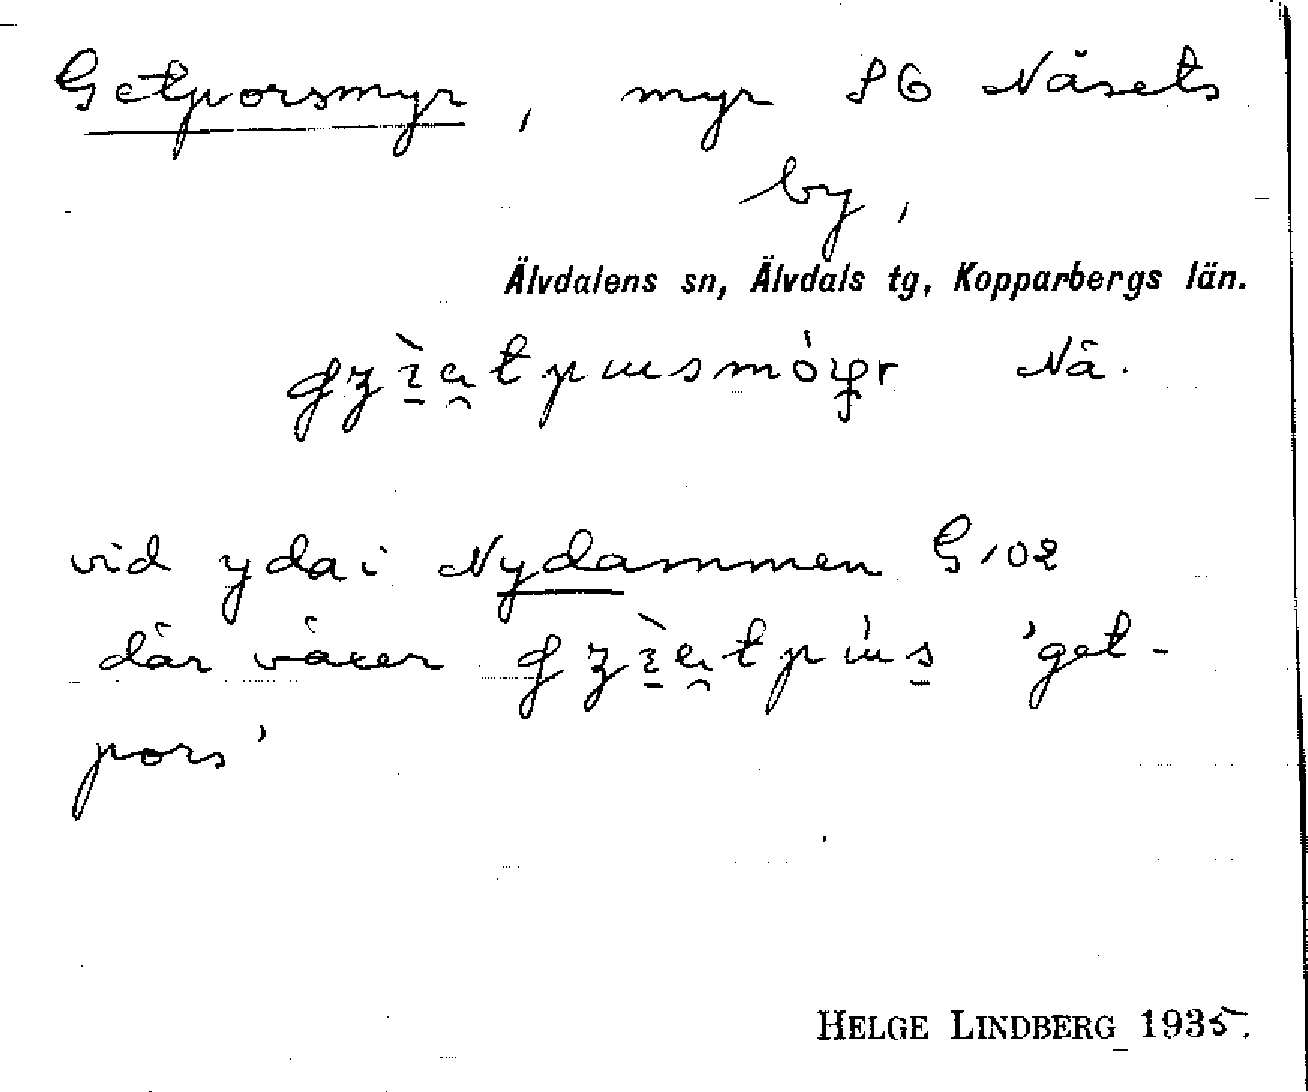 Getporsmyr, myr SO Näsets
by,
Älvdalens sn, Älvdals tg, Kopparbergs län.
Nä.
vid ydai Nydammen G102
där växer 'get-
pors'
HELGE LINDBERG 1935.